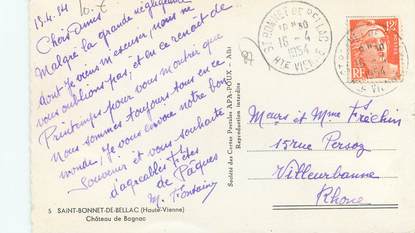 13-4-54
10.F
Chers Amis
Malgré la grande négligence
dont je viens m'excuse, nous ne
vous oublions pas, et en ce renoit de
Printemps pour vous montrer que
nous sommes toujours tous en ce
monde. Je vous envoie notre bon
Souvenir et vous souhaite
d'agréables Fêtes
de Pâques
Fontaine
5 SAINT-BONNET-DE-BELLAC (Haute-Vienne)
Château de Bagnac
Société des Cartes Postales APA-POUX - Albi
87
ST BONNET DE BELLAC
16-4
1954
HTE VIENNE
12F
RF
Mr et Mme Fréchin
15 rue Persoz
Villeurbanne
Rhône